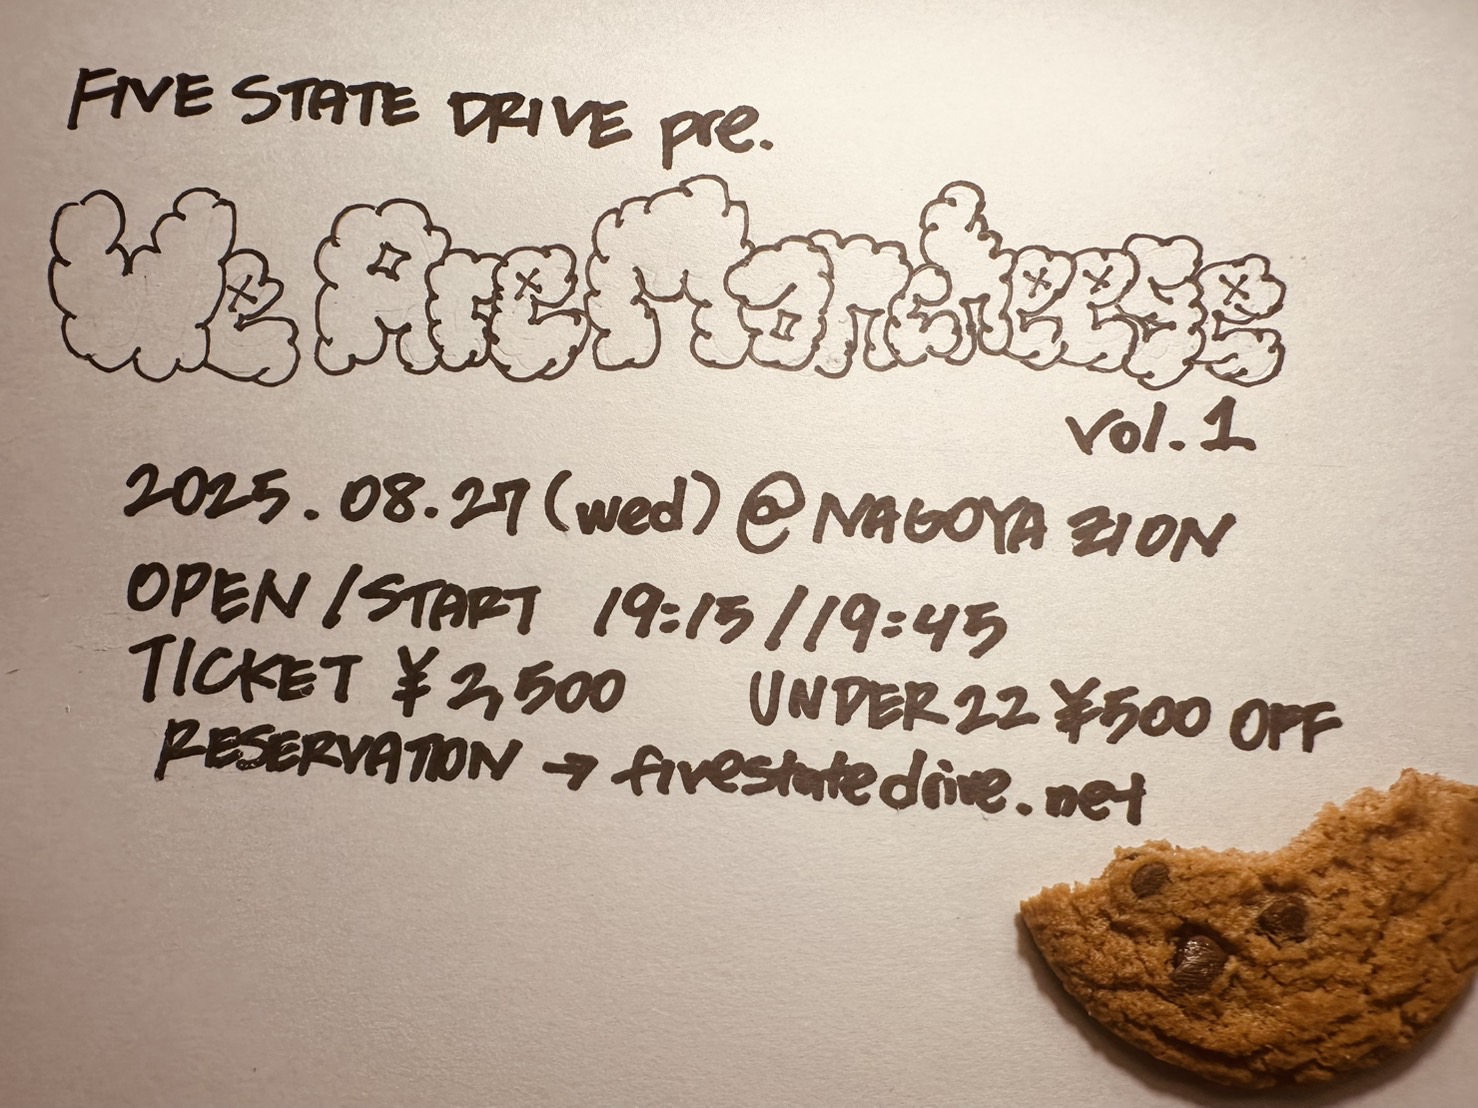 FIVE STATE DRIVE pre.
We Are Mancheese
vol.1
2025.08.27(wed) @NAGOYA ZION
OPEN/START 19:15//19:45
TICKET ¥2,500 UNDER22 ¥500 OFF
RESERVATION → fivestatedrive.net